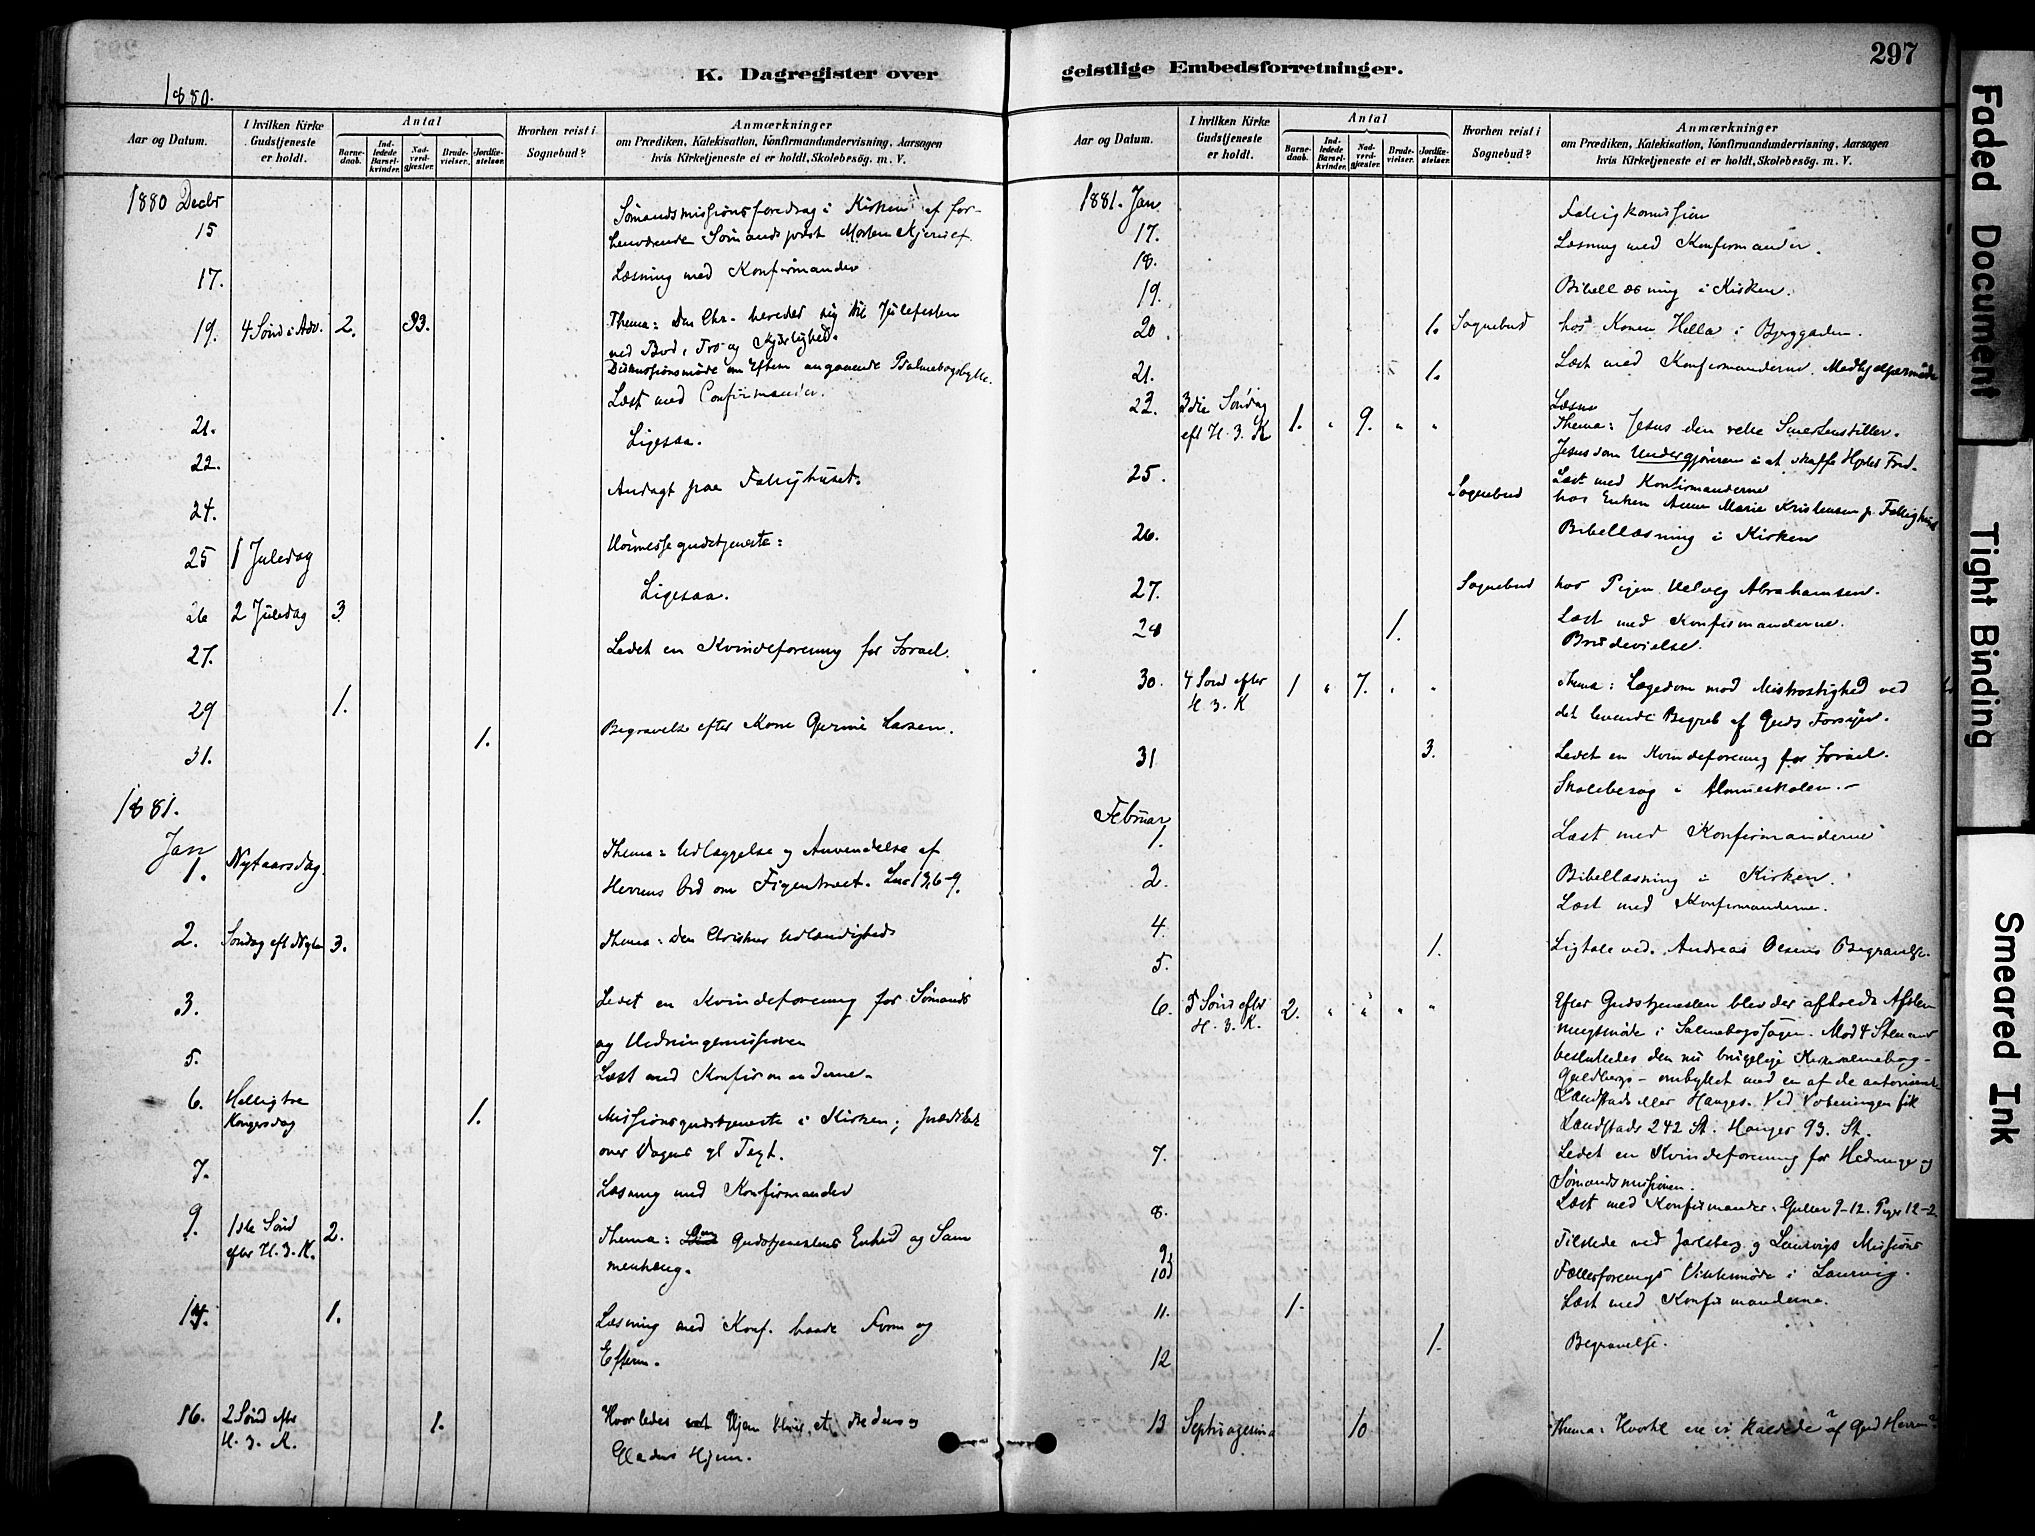 297
K. Dagregister over
geistlige Embedsforretninger.
1880.
Aar og Datum.
I hvilken Kirke Gudstjeneste er holdt.
Antal
Barne-daab.
Ind-ledede Barsel-kvinder.
Nad-verd-gjæster.
Brude-vielser.
Jordfæ-stelser.
Hvorhen reist i Sognebud?
Anmærkninger
om Prædiken, Katekisation, Konfirmandundervisning, Aarsagen
hvis Kirketjeneste ei er holdt, Skolebesøg. m. V.
1880 Decbr
15 Sømandsmissionsforedrag i Kirken af for-
henværende Sømandspræst Morten
17. Læsning med Konfirmander
19. 4 Sønd i Adv. 2. 93. Thema: Den Chr. bereder sig til Julefesten
ved Bod, Tro og Kjærlighed.
Diskussionsmøde om Eftem angaaende Psalmebogsbytte.
21. Læst med Confirmander.
22. Ligesaa.
24. Andagt paa Fattighuset.
25 1 Juledag Høimesse gudstjeneste:
26 2 Juledag 3 Ligesaa.
27. Ledet en Kvindeforening for Israel.
29 1.
31. 1. Begravelse efter Kone Larsen.
1881.
Jan
1. Nytaarsdag. Thema: Udlæggelse og Anvendelse af
Herrens Ord om Figentræet. Luc 13,6-9.
2. Søndag eft Nytaar 3. Thema: Den Christnes Udlændighed
3. Ledet en Kvindeforening for Sømands
og Hedningemissionen
5. Læst med Konfirmanderne.
6. Hellig tre Kongersdag 1. Missionsgudstjeneste i Kirken; prædiket
over Dagens gl Text.
7. Læsning med Konfirmander
9. 1ste Sønd efter H. 3. K. 2. Thema: Gudstjenestens Enhed og Sam
menhæng.
14. 1. Læsning med Konf. baade Form og
Efterm.
16. 2 Sønd efter H. 3. K. 1. Hvorledes Hjem bliver et Fredens og
Glædens Hjem.
Aar og Datum.
I hvilken Kirke Gudstjeneste er holdt.
Antal
Barne-daab.
Ind-ledede Barsel-kvinder.
Nad-verd-gjæster.
Brude-vielser.
Jordfæ-stelser.
Hvorhen reist i Sognebud?
Anmærkninger
om Prædiken, Katekisation, Konfirmandundervisning, Aarsagen
hvis Kirketjeneste ei er holdt, Skolebesøg. m. V.
1881. Jan
17. Fattigkomission
18. Læsning med Konfirmander.
19. Bibellæsning i Kirken.
20. 1. Sognebud hos Konen Hella i Bjerggaden.
21. 1. Læst med Konfirmanderne. Medhjælpermøde
23. 3die Søndag eft H. 3. K 1. " 9. " " Thema: Jesus den rette Smertensstiller.
Jesus som Undergjøreren i at skaffe Hjertet Fred.
25. Læst med Konfirmanderne
Sognebud hos Enken Anne Marie Kristensen p. Fattighus
26. Bibellæsning i Kirken
27. Sognebud hos Pigen Abrahamsen.
28 1. Læst med Konfirmanderne.
Brudevielse.
30. 4 Sønd efter H. 3. K 1 " 7. " " Thema: Lægedom mod Mistrøstighed ved
det levende Begreb af Guds Forsyn.
31 3. Ledet en Kvindeforening for Israel.
Skolebesøg i Almueskolen.-
Februar
1. Læst med Konfirmanderne
2. Bibellæsning i Kirken.
4. Læst med Konfirmanderne.
5. 1. Ligtale ved Andreas Olsens Begravelse.
6. 5 Sønd efter H. 3. K. 2. " " " " Efter Gudstjenesten blev der afholdt Afstem
ningsmøde i Salmebogssagen. Mod 4 Stemmer
besluttedes den nu brugelige Kirkesalmebog-
Guldbergs - ombyttet med en af de autoriserede
Landstads eller Hauges. Ved Voteringen fik
Landstads 242 St. Hauges 93. St.
7. Ledet en Kvindeforening for Hedninge og
Sømandsmissionen.
8. Læst med Konfirmander: Gutter 9-12. Piger 12-2
9 10 Tilstede ved Jarlsberg og Laurvigs Missions
Fællesforenings Vintermøde i Laurvig.
11. 1. Læst med Konfirmanderne.
12 1. Begravelse.
13 Septuagesima 10 Thema: Hvortil ere vi kaldede af Gud Herren?
Faded Document
Tight Binding
Smeared Ink